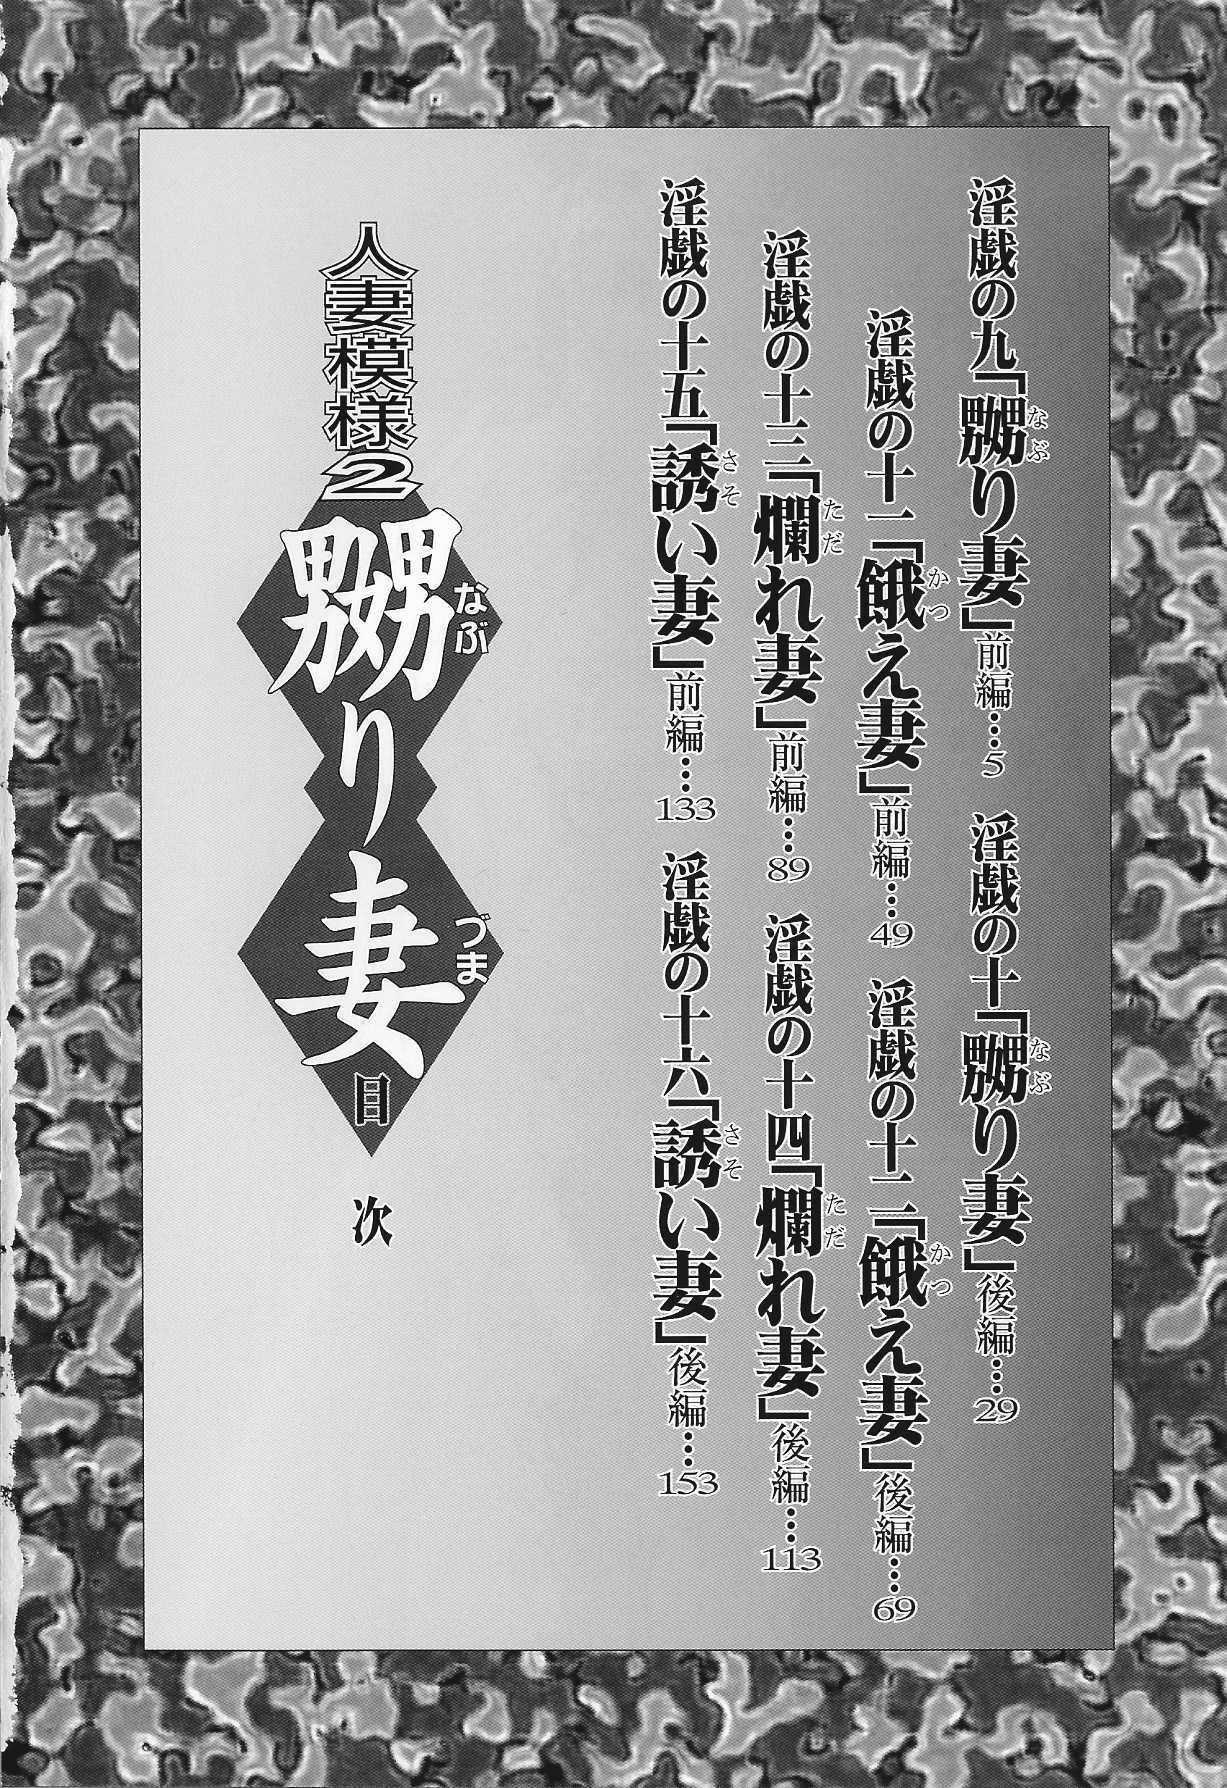 淫戯の九「嬲り妻」前編…5
淫戯の十「嬲り妻」後編…29
淫戯の十一「餓え妻」前編…49
淫戯の十二「餓え妻」後編…69
淫戯の十三「爛れ妻」前編…89
淫戯の十四「爛れ妻」後編…113
淫戯の十五「誘い妻」前編…133
淫戯の十六「誘い妻」後編…153
なぶ
なぶ
かつ
かつ
ただ
ただ
さそ
さそ
人妻模様2
嬲り妻
なぶ
づま
目次